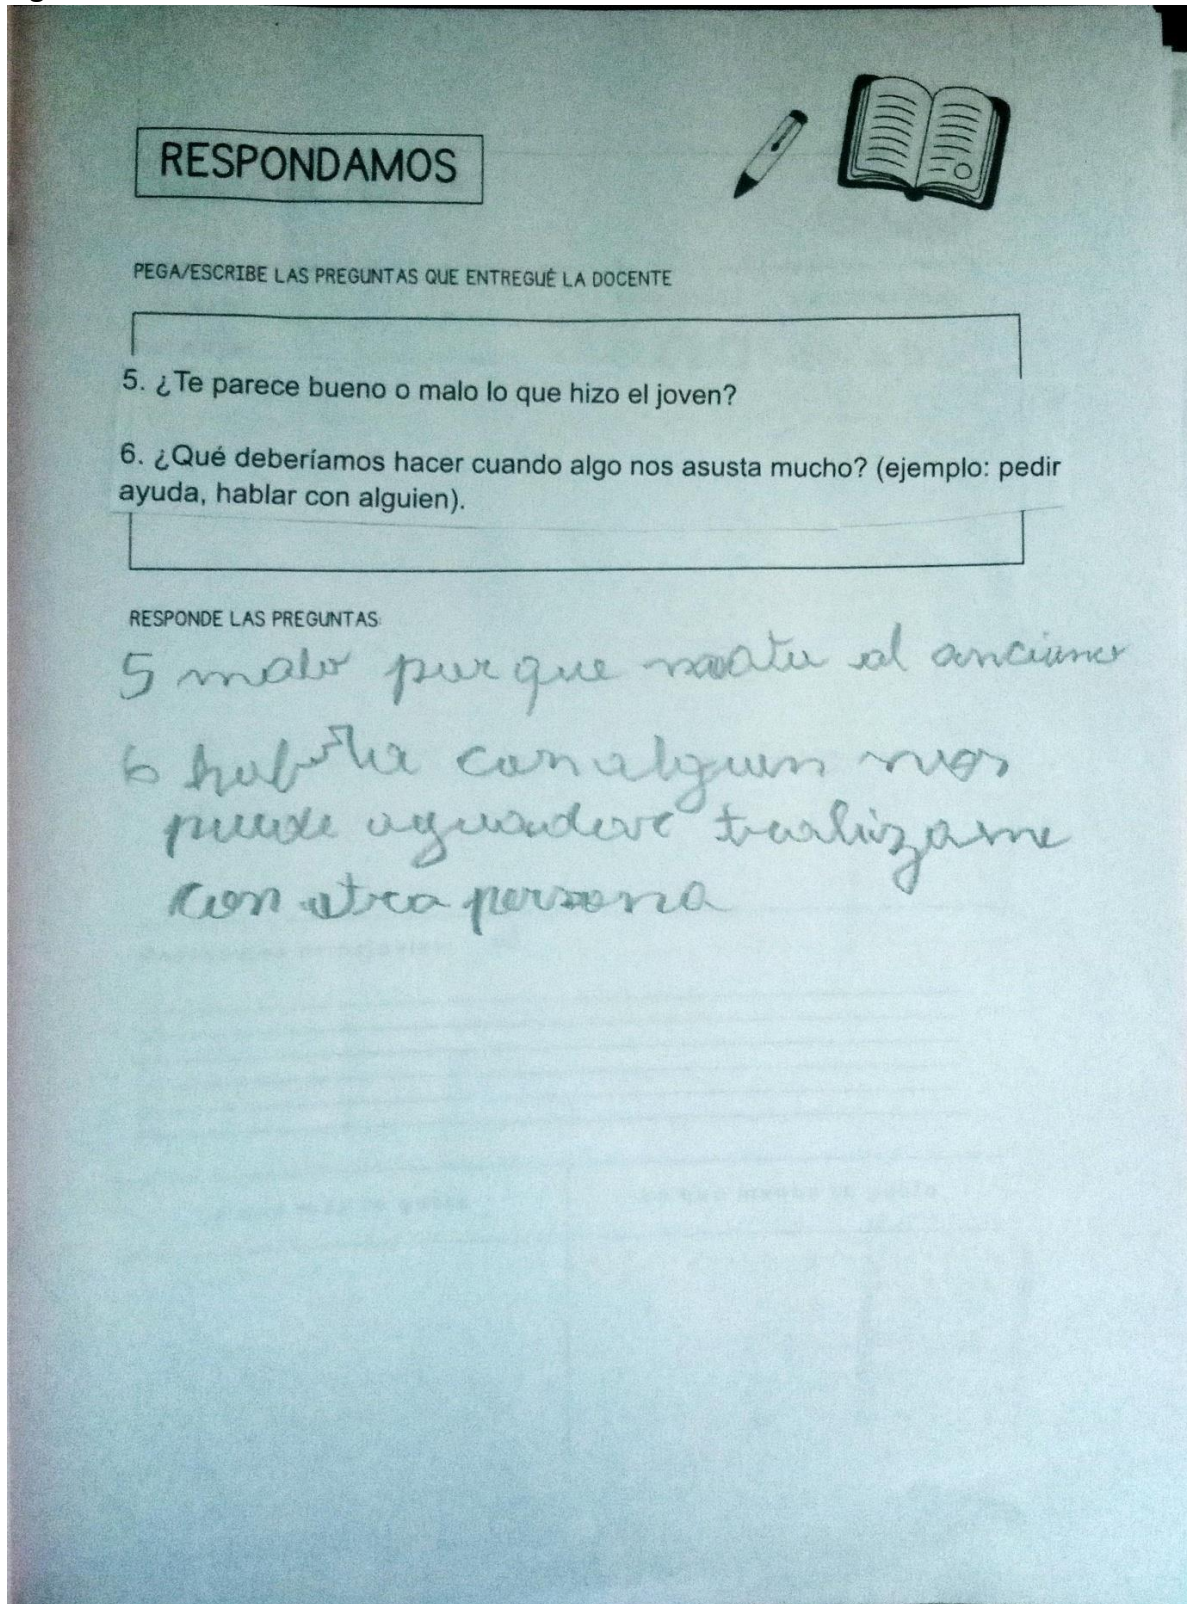 RESPONDAMOS
PEGA/ESCRIBE LAS PREGUNTAS QUE ENTREGUÉ LA DOCENTE
5. ¿Te parece bueno o malo lo que hizo el joven?
6. ¿Qué deberíamos hacer cuando algo nos asusta mucho? (ejemplo: pedir
ayuda, hablar con alguien).
RESPONDE LAS PREGUNTAS:
5 malo porque mato al anciano
6 con alguien nos
puede
con otra persona